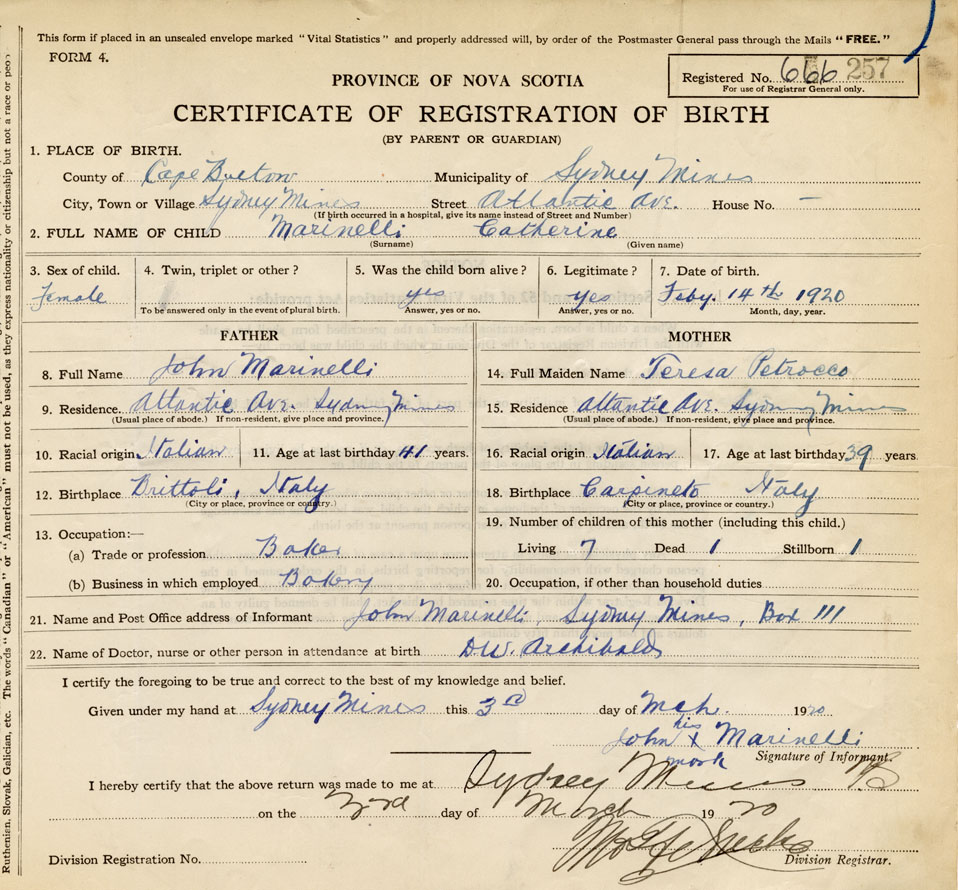 This form if placed in an unsealed envelope marked "Vital Statistics" and properly addressed will, by order of the Postmaster General pass through the Mails "FREE."
FORM 4.
Registered No. 666 257
For use of Registrar General only.
PROVINCE OF NOVA SCOTIA
CERTIFICATE OF REGISTRATION OF BIRTH
(BY PARENT OR GUARDIAN)
1. PLACE OF BIRTH.
County of Cape Breton Municipality of Sydney Mines
City, Town or Village Sydney Mines Street Atlantic Ave. House No. —
(If birth occurred in a hospital, give its name instead of Street and Number)
2. FULL NAME OF CHILD Marinelli Catherine
(Surname) (Given name)
3. Sex of child. 4. Twin, triplet or other? 5. Was the child born alive? 6. Legitimate? 7. Date of birth.
Female yes yes Feby. 14th 1920
To be answered only in the event of plural birth. Answer, yes or no. Answer, yes or no. Month, day, year.
FATHER MOTHER
8. Full Name John Marinelli 14. Full Maiden Name Teresa Petrocco
9. Residence. Atlantic Ave. Sydney Mines 15. Residence Atlantic Ave. Sydney Mines
(Usual place of abode.) If non-resident, give place and province. (Usual place of abode.) If non-resident, give place and province.
10. Racial origin Italian 11. Age at last birthday 41 years. 16. Racial origin Italian 17. Age at last birthday 39 years
12. Birthplace Brittoli, Italy 18. Birthplace Carpineto Italy
(City or place, province or country.) (City or place, province or country.)
13. Occupation:— 19. Number of children of this mother (including this child.)
(a) Trade or profession Baker Living 7 Dead 1 Stillborn 1
(b) Business in which employed Bakery 20. Occupation, if other than household duties
21. Name and Post Office address of Informant John Marinelli, Sydney Mines, Box 111
22. Name of Doctor, nurse or other person in attendance at birth D.W. Archibald
I certify the foregoing to be true and correct to the best of my knowledge and belief.
Given under my hand at Sydney Mines this 3rd day of Mch. 1920
his
John X Marinelli
mark
Signature of Informant.
I hereby certify that the above return was made to me at Sydney Mines NS
on the 3rd day of March 1920
Division Registration No. Division Registrar.
Ruthenian, Slovak, Galician, etc. The words "Canadian" or "American" must not be used, as they express nationality or citizenship but not a race or